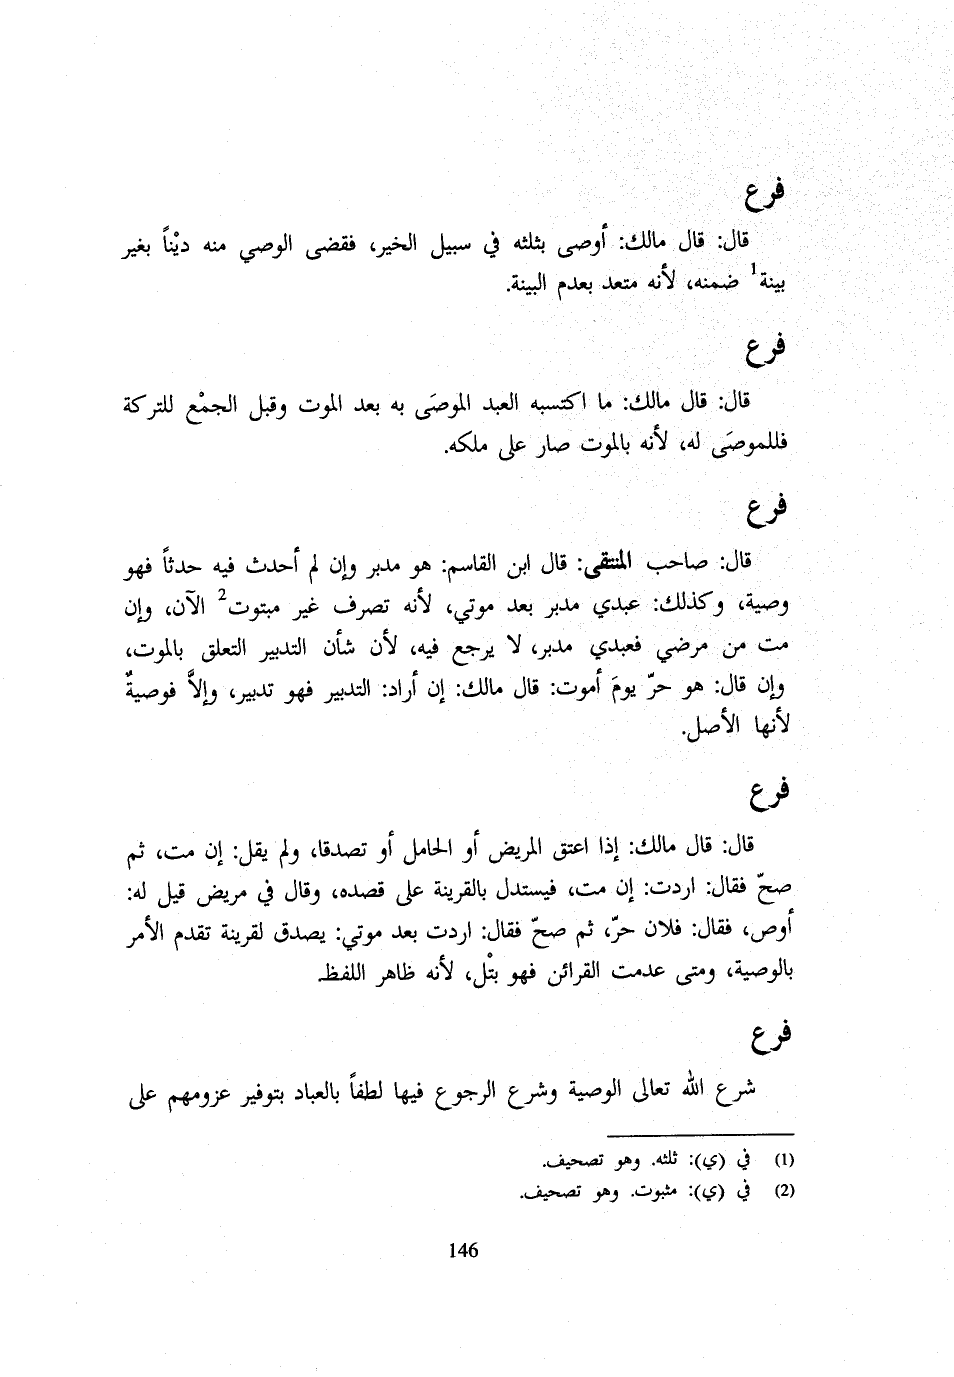 فرع
قال: قال مالك: أوصى بثلثه في سبيل الخير، فقضى الوصي منه ديْناً بغير
بينة1 ضمنه، لأنه متعد بعدم البينة.
فرع
قال: قال مالك: ما اكتسبه العبد الموصَى به بعد الموت وقبل الجمْع للتركة
فللموصَى له، لأنه بالموت صار على ملكه.
فرع
قال: صاحب المنتقى: قال ابن القاسم: هو مدبر وإن لم أحدث فيه حدثاً فهو
وصية، وكذلك: عبدي مدبر بعد موتي، لأنه تصرف غير مبتوت2 الآن، وإن
مت من مرضي فعبدي مدبر، لا يرجع فيه، لأن شأن التدبير التعلق بالموت،
وإن قال: هو حرّ يومَ أموت: قال مالك: إن أراد: التدبير فهو تدبير، وإلاَّ فوصيةٌ
لأنها الأصل.
فرع
قال: قال مالك: إذا اعتق المريض أو الحامل أو تصدقا، ولم يقل: إن مت، ثم
صحّ فقال: اردت: إن مت، فيستدل بالقرينة على قصده، وقال في مريض قيل له:
أوص، فقال: فلان حرّ، ثم صحّ فقال: اردت بعد موتي: يصدق لقرينة تقدم الأمر
بالوصية، ومتى عدمت القرائن فهو بتْل، لأنه ظاهر اللفظ.
فرع
شرع الله تعالى الوصية وشرع الرجوع فيها لطفاً بالعباد بتوفير عزومهم على
(1) في (ي): ثلثه. وهو تصحيف.
(2) في (ي): مثبوت. وهو تصحيف.
146